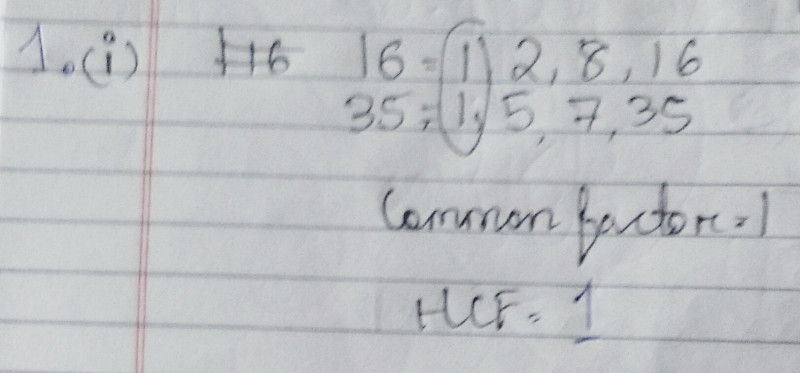 1.(i) 16 = 1, 2, 8, 16
35 = 1, 5, 7, 35
Common factor = 1
HCF = 1